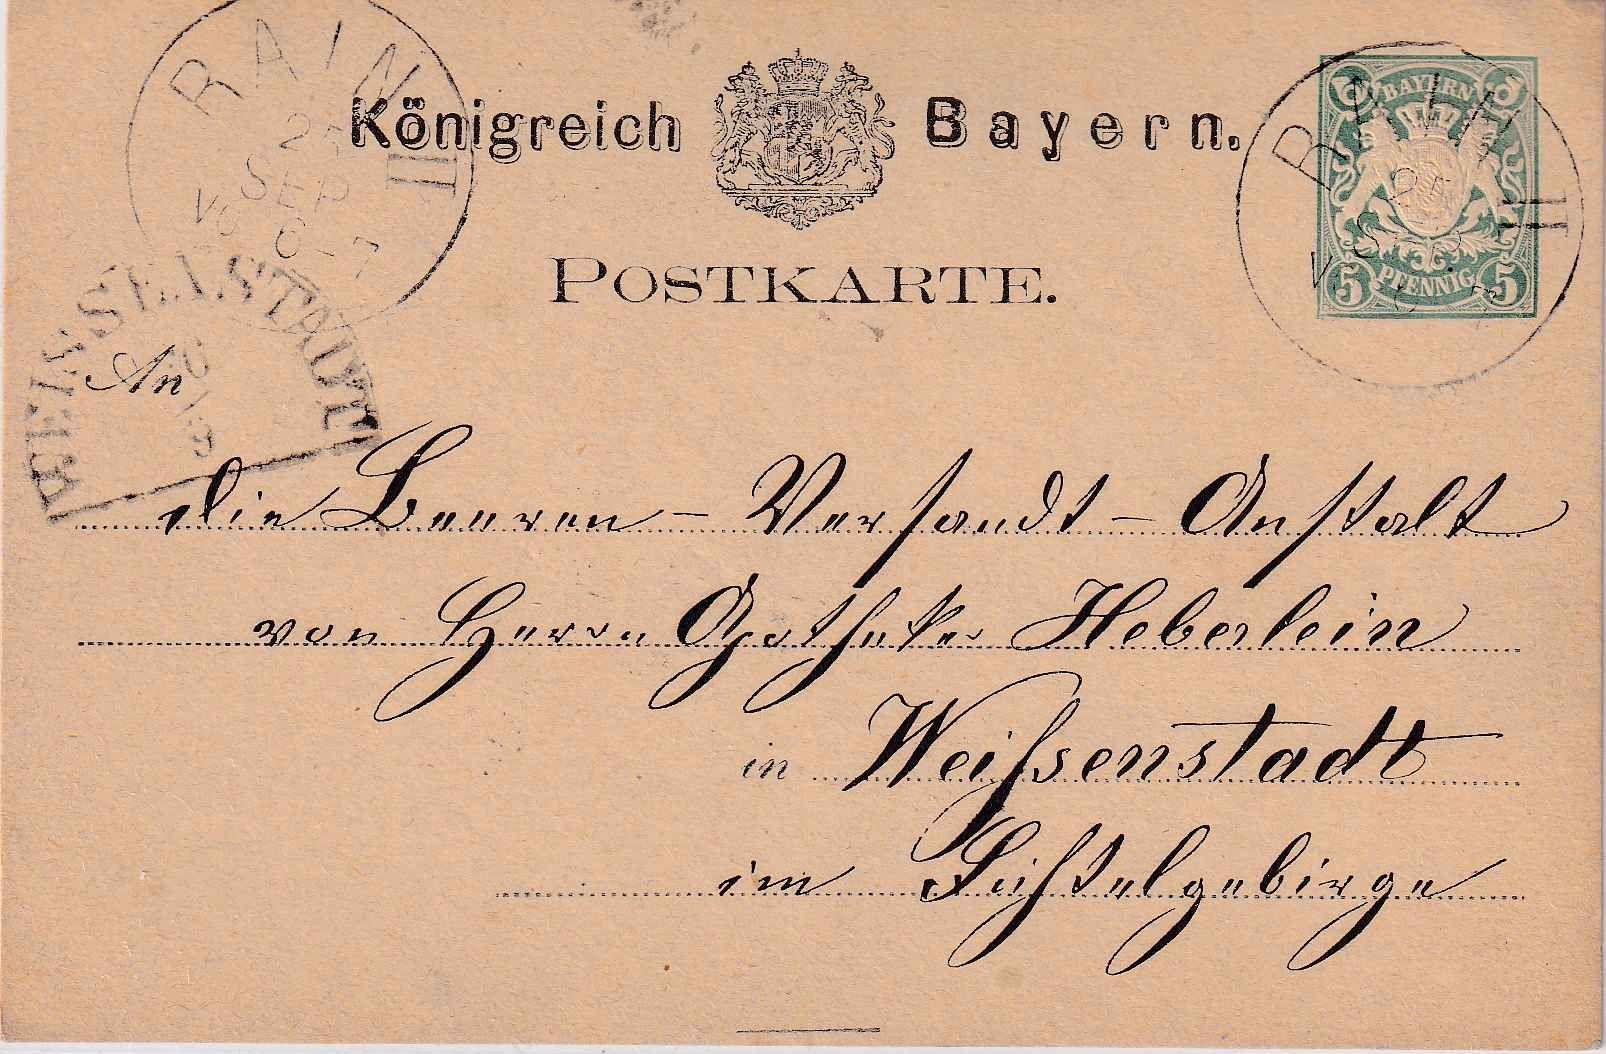 RAIN II
25
SEP
VO 6-7
Königreich Bayern.
BAYERN
5 PFENNIG 5
RAIN II
25
POSTKARTE.
WEISSENSTADT
An
die Beeren-Versandt-Anstalt
von Herrn Apotheker Heberlein
in Weißenstadt
im Fichtelgebirge